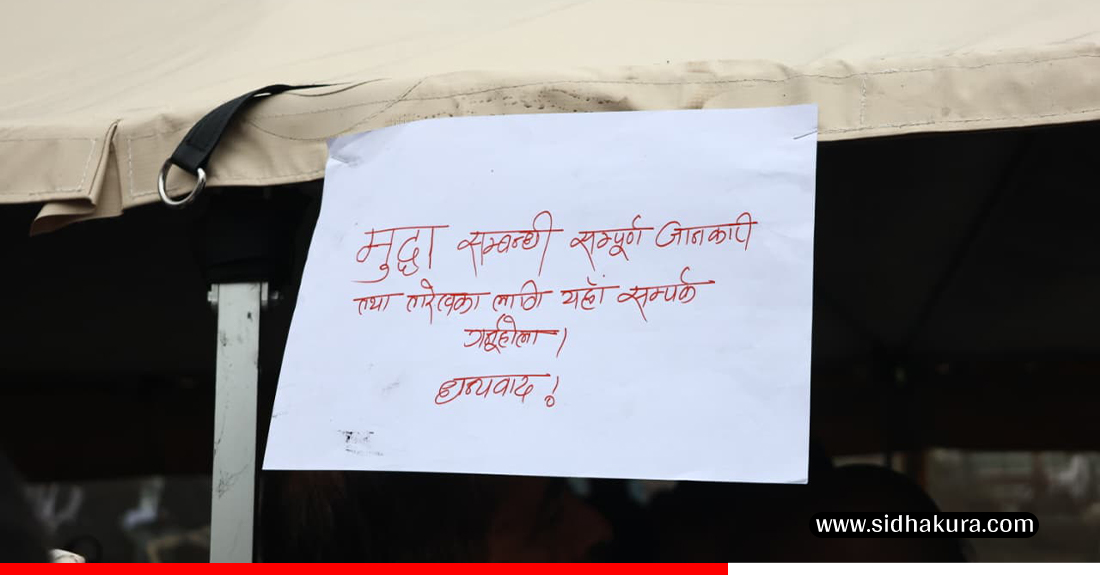 मुद्दा सम्बन्धी सम्पूर्ण जानकारी
तथा तारेखका लागि यहाँ सम्पर्क
गर्नुहोला।
धन्यवाद!
www.sidhakura.com